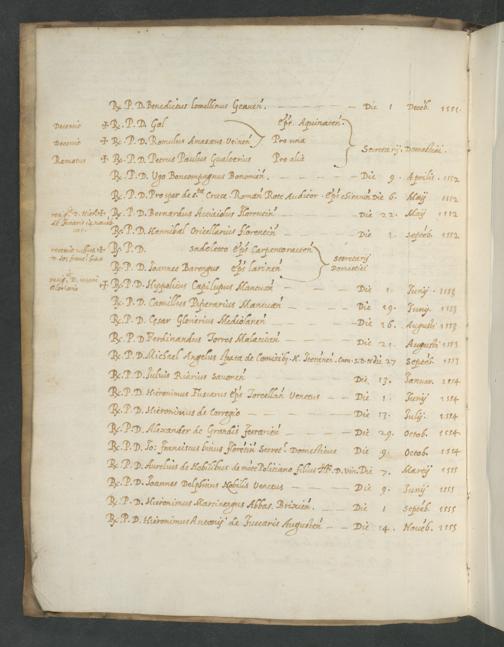 R. P. D. Benedictus Lomellinus Genuen. Die 1 Decēb. 1551
Decessit + R. P. D. Gal Epō. Aquinaten.
Decessit + R. P. D. Romulus Amaseus Pro una Secretarij Domestici.
+ R. P. D. Petrus Paulus Gualterius Pro alia
R. P. D. Ugo Boncompagnus Bononien. Die 9. Aprilis. 1552
R. P. D. Prosper de Cruce Roman Rote Auditor Die 6. Maij 1552
R. P. D. Bernardus Acciaiolus Florentin Die 22. Maij 1552
+ R. P. D. Hannibal Oricellarius Florentin Die 1. Septēb. 1552
R. P. D. Sadoleto Epō Carpentoracten Secretarij
R. P. D. Ioannes Barengus Epō Domestici
+ R. P. D. Hyppolitus Capilupus Mantuan Die 1. Iunij. 1553
R. P. D. Camillus Mantuan Die 29. Iunij. 1553
R. P. D. Cesar Glorierius Die 26. Augusti 1553
R. P. D. Ferdinandus Torres Malacien Die 21. Augusti 1553
R. P. D. Michael Angelus die 27 Septēb. 1553
R. P. D. Iulius Riarius Savonen Die 13. Ianuar. 1554
R. P. D. Hieronimus Fuscarus Epō Torcellan Venetus Die 1. Iunij 1554
R. P. D. Hieronimus de Corregio Die 13. Iulij. 1554
R. P. D. Alexander de Grandis Ferrarien Die 29. Octob. 1554
R. P. D. Io: Franciscus Florentin Secret. Domesticus Die 9. Octob. 1554
R. P. D. Aurelius de Nobilibus de mōte Politiano filius Die 7. Martij 1555
R. P. D. Ioannes Delphinus Nobilis Venetus Die 9. Iunij 1555
R. P. D. Hieronimus Martinengus Abbas. Brixien. Die 1 Septēb. 1555
R. P. D. Hieronimus Antonij de Augusten Die 14. Novēb. 1555